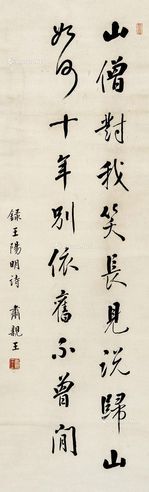 山僧對我笑長見說歸山
如何十年別依舊不曾閒
錄王陽明詩 肅親王